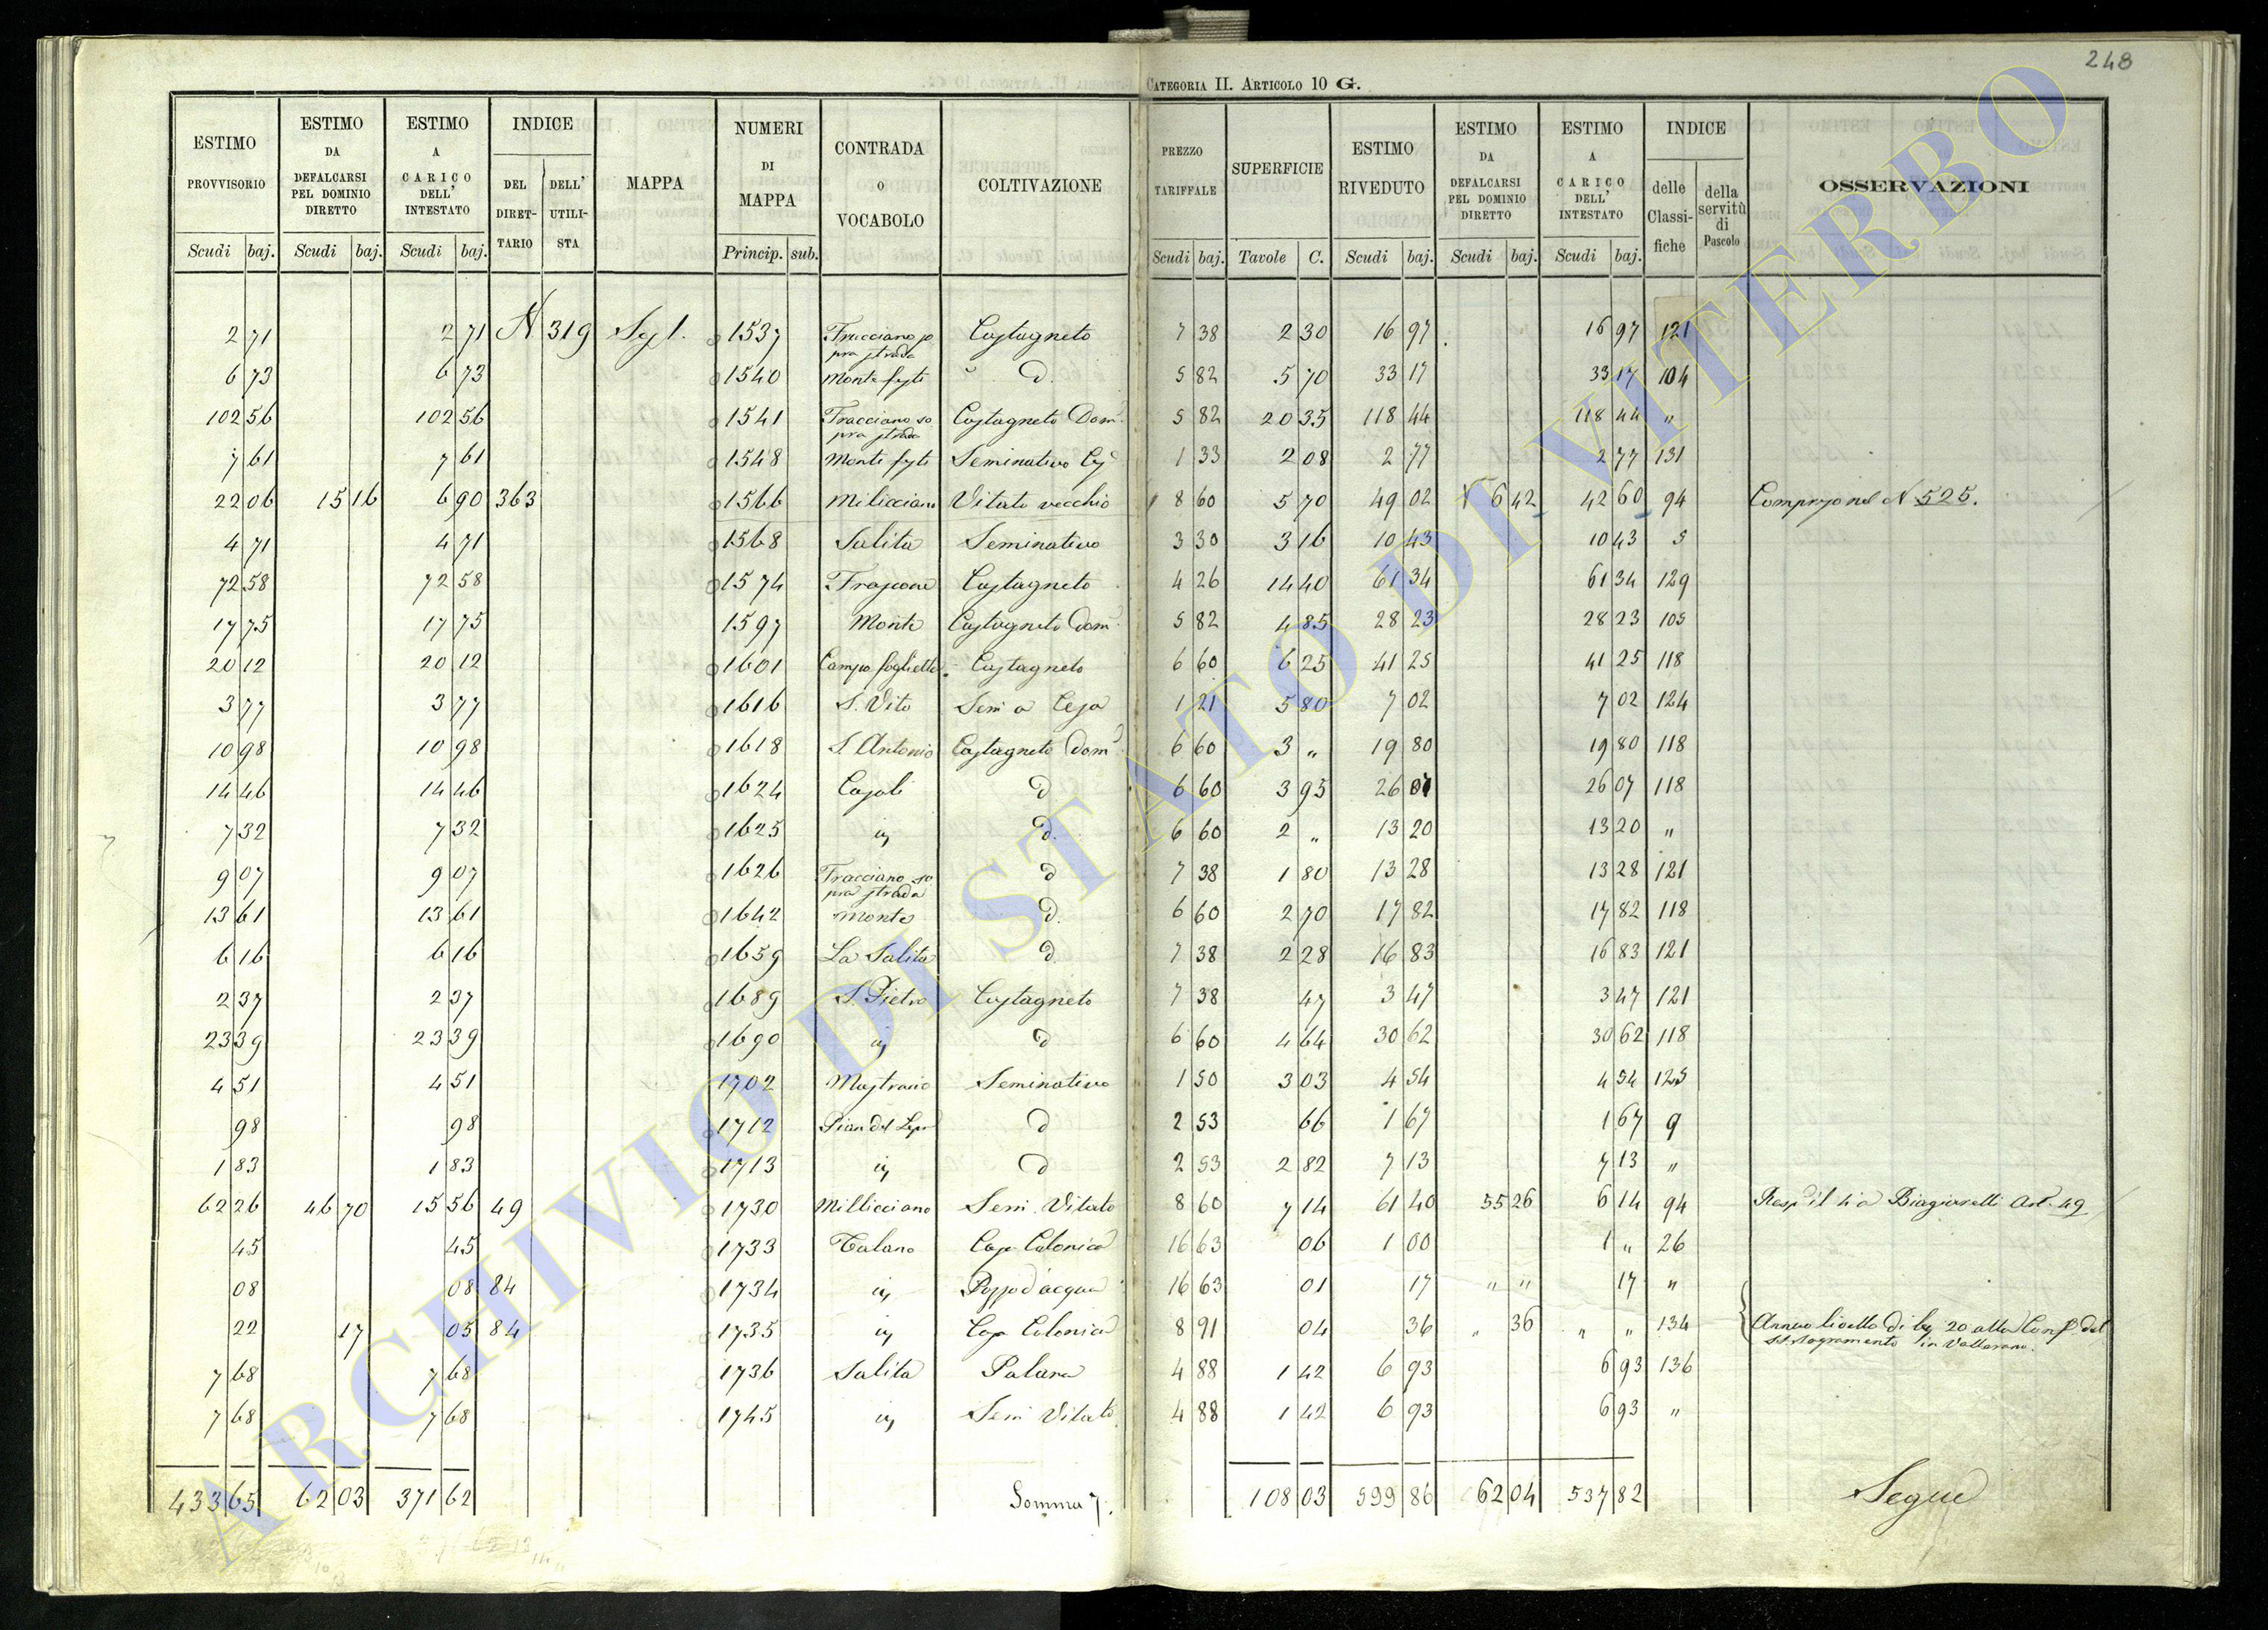 248
CATEGORIA II. ARTICOLO 10 G.
ESTIMO PROVVISORIO Scudi baj.
ESTIMO DA DEFALCARSI PEL DOMINIO DIRETTO Scudi baj.
ESTIMO A CARICO DELL' INTESTATO Scudi baj.
INDICE DEL DIRETTARIO DELL' UTILISTA
MAPPA
NUMERI DI MAPPA Princip. sub.
CONTRADA O VOCABOLO
COLTIVAZIONE
PREZZO TARIFFALE Scudi baj.
SUPERFICIE Tavole C.
ESTIMO RIVEDUTO Scudi baj.
ESTIMO DA DEFALCARSI PEL DOMINIO DIRETTO Scudi baj.
ESTIMO A CARICO DELL' INTESTATO Scudi baj.
INDICE delle Classifiche della servitù di Pascolo
OSSERVAZIONI
2 71 2 71 N 319 1537 Fracciano so pra strada Castagneto 7 38 2 30 16 97 16 97 121
6 73 6 73 1540 d. 5 82 5 70 33 17 33 17 104
102 56 102 56 1541 Fracciano so pra strada Castagneto Dom. 5 82 20 35 118 44 118 44 "
7 61 7 61 1548 Seminativo 1 33 2 08 2 77 2 77 131
22 06 15 16 6 90 363 1566 Milicciano Vitato vecchio 8 60 5 70 49 02 6 42 42 60 94 Compreso nel N 525.
4 71 4 71 1568 Salita Seminativo 3 30 3 16 10 43 10 43 5
72 58 72 58 1574 Castagneto 4 26 14 40 61 34 61 34 129
17 75 17 75 1597 Monte Castagneto Dom. 5 82 4 85 28 23 28 23 105
20 12 20 12 1601 Campo foglietto Castagneto 6 60 6 25 41 25 41 25 118
3 77 3 77 1616 S. Vito Sem a 1 21 5 80 7 02 7 02 124
10 98 10 98 1618 S. Antonio Castagneto Dom 6 60 3 " 19 80 19 80 118
14 46 14 46 1624 Casali d 6 60 3 95 26 07 26 07 118
7 32 7 32 1625 d. 6 60 2 " 13 20 13 20 "
9 07 9 07 1626 Fracciano so pra strada d 7 38 1 80 13 28 13 28 121
13 61 13 61 1642 Monte d. 6 60 2 70 17 82 17 82 118
6 16 6 16 1659 La Salita d 7 38 2 28 16 83 16 83 121
2 37 2 37 1689 S. Pietro Castagneto 7 38 47 3 47 3 47 121
23 39 23 39 1690 d 6 60 4 64 30 62 30 62 118
4 51 4 51 1702 Mastrano Seminativo 1 50 3 03 4 54 4 54 125
98 98 1712 Pian del d 2 53 66 1 67 1 67 9
1 83 1 83 1713 d 2 53 2 82 7 13 7 13 "
62 26 46 70 15 56 49 1730 Millicciano Sem. Vitato 8 60 7 14 61 40 55 26 6 14 94 Resp il 4 a Biagiarelli Art. 49
45 45 1733 Talano Casa Colonica 16 63 06 1 00 1 " 26
08 08 84 1734 Pozzo d'acqua 16 63 01 17 " " 17 "
22 17 05 84 1735 Casa Colonica 8 91 04 36 " 36 " " 134 Annuo livello di bj 20 alla Conf. del
SS. Sagramento in Vallerano.
7 68 7 68 1736 Salita 4 88 1 42 6 93 6 93 136
7 68 7 68 1745 Sem Vitato 4 88 1 42 6 93 6 93 "
433 65 62 03 371 62 Somma 108 03 599 86 62 04 537 82 Segue
ARCHIVIO DI STATO DI VITERBO